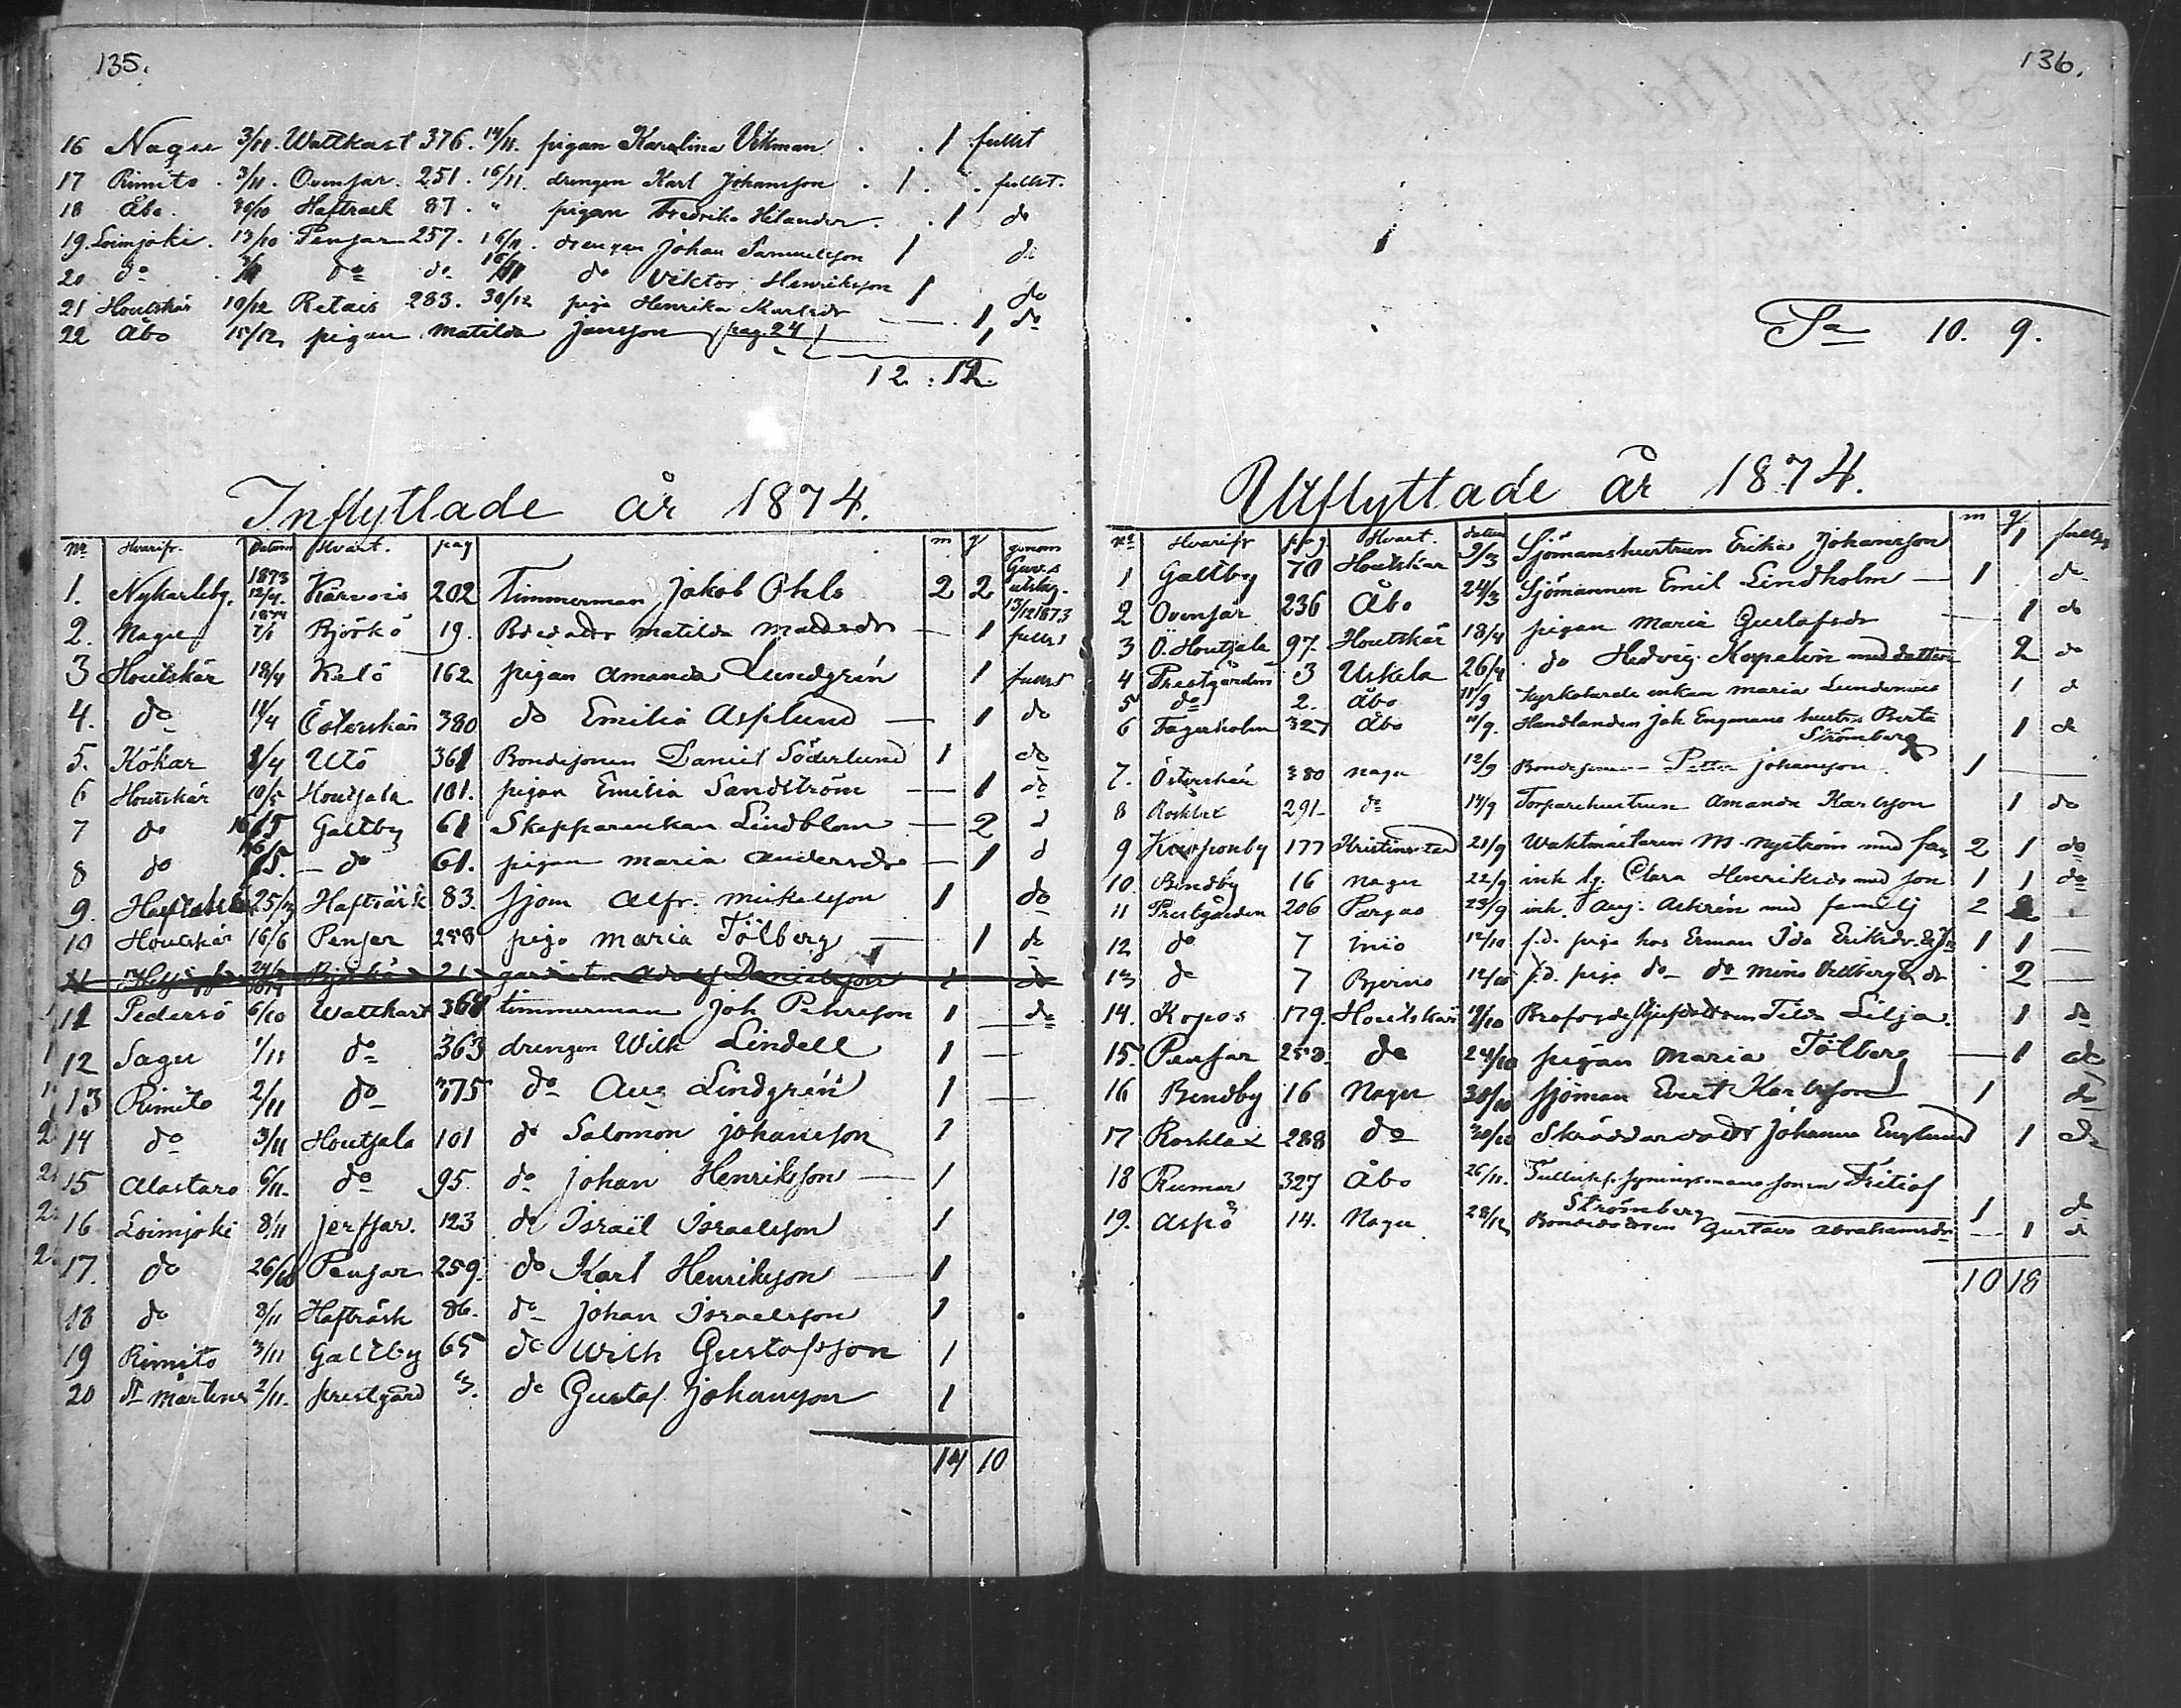 135.
16 Nagu 3/11. Wattkast 376. 14/11. pigan Karolina Vikman. . . 1 fullst
17 Rimito . 3/11. Ovensar. 251. 16/11. drengen Karl Johansson . 1 . . fullst.
18 Åbo. 30/10 Hafträsk 87. " pigan Fredrika Hilander. . 1 do
19. Loimjoki. 13/10 Pensar 257. 16/11. drengen Johan Samuelsson 1 do
20 do do do 16/11 do Viktor Henriksson 1
21 Houtskär 10/12 Retais 283. 30/12 piga Henrika Karlsdr — . 1, do
22 Åbo 15/12, pigan Matilda Jansson pag. 24 1 do
12. : 12.
Inflyttade år 1874.
No Hvarifr. Datum Hvart. pag m q genom
1. Nykarleby. 1873 12/4. Kärvois 202 Timmerman Jakob Ohls 2 2 utslag. 13/12 1873
2. Nagu 1874 7/1 Björkö 19. Bdedotr Matilda Matsdr — 1 fullst
3 Houtskär 18/4 Kelö 162 pigan Amanda Lundgrén 1 fullst
4. do 11/4 Österskär 380 do Emilia Asplund — 1 do
5. Kökar 8/4 Utö 361 Bondesonen Daniel Söderlund 1 do
6 Houtskär 10/5 Houtsala 101. pigan Emilia Sandström — 1 do
7 do 16/5 Galtby 61 Skepparenkan Lindblom — 2 d
8 do /5. — do 61. pigan Maria Andersdr — 1 d
9. 25/ Hafträsk 83. sjom Alfr. Mickelsson 1 do
10 Houtskär 16/6 Pensar 258 piga Maria Tölberg — 1 do
11 Björkö 21 Danielsson 1 do
11 Pedersö 6/10 Wattkast 368 timmerman Joh Pehrsson 1 — do
12 Sagu 1/11 do 363 drengen Wilh Lindell 1 —
13 Rimito 2/11 do 375 do Aug Lindgrén 1 —
14 do 3/11 Houtsala 101 do Salomon Johansson 1
15 Alastaro 6/11. do 95. do Johan Henriksson — 1
16 Loimjoki 8/11 Jerfsar. 123 do Israël Israelsson 1
17. do 26/10 Pensar 259. do Karl Henriksson — 1
18 do 8/11 Hafträsk 86. do Johan Israelsson 1
19 Rimito 3/11 Galtby 65 do Wilh Gustafsson 1
20 St Mårtens 2/11. prestgård 3. do Gustaf Johansson 1
14 10
136.
Sa 10. 9.
Utflyttade år 1874.
No Hvarifr pag Hvart. datum m q
1 Galtby 70 Houtskär 9/3 Sjömanshustrun Erika Johansson 1 fullst
2 Ovensar 236 Åbo 24/3 Sjömannen Emil Lindholm — 1 . do
3 Ö. Houtsala 97. Houtskär 18/4 pigan Maria Gustafsdr — 1 do
4 Prestgården 3 Uskela 26/4 do Hedvig Kopelin med dotter 2 do
5 do 2. Åbo 11/9 Kyrkoherde enkan Maria Lundenius 1 d
6 Fagerholm 327 Åbo 11/9. Handlanden Joh Engmans hustru Berta Strömberg 1 do
7. Österskär 380 Nagu 12/9 Bondesonen Petter Johansson 1 —
8 Rosklax 291— do 14/9 Torparehustrun Amanda Karlsson 1 do
9 Korponby 177 Kristinestad 21/9 Waktmästaren M. Nyström med fam 2 1 do
10. Bendby 16 Nagu 22/9 inh Clara Henriksdr med son 1 1 do
11 Prestgården 206 Pargas 23/9 inh. Aug: Ackrén med familj 2
12 do 7 Iniö 12/10 f.d. piga hos Erman Ida Eriksdr. 1 1 —
13 do 7 Bjerno 12/10 f.d. piga do do Mina Vellberg do . 2 —
14. Kopos 179. Houtskär Tilda Lilja. 1 do
15. Pensar 258. do 24/10 pigan Maria Tölberg — 1 do
16 Bendby 16 Nagu 30/10 sjöman Evert Karlsson 1 do
17 Rosklax 288 do 30/10 Skräddaredottr Johanna Englund 1 do
18 Rumar 327 Åbo 26/11. Tulluppsyningsmans sonen Fritiof Strömberg 1 do
19. Aspö 14. Nagu 28/12 Bondedottren Gustava Abrahamsdr — 1 d
10 18